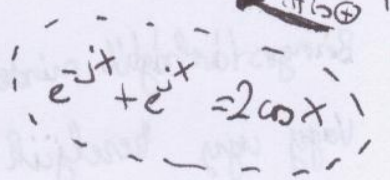 e^{-jx} + e^{jx} = 2cos x